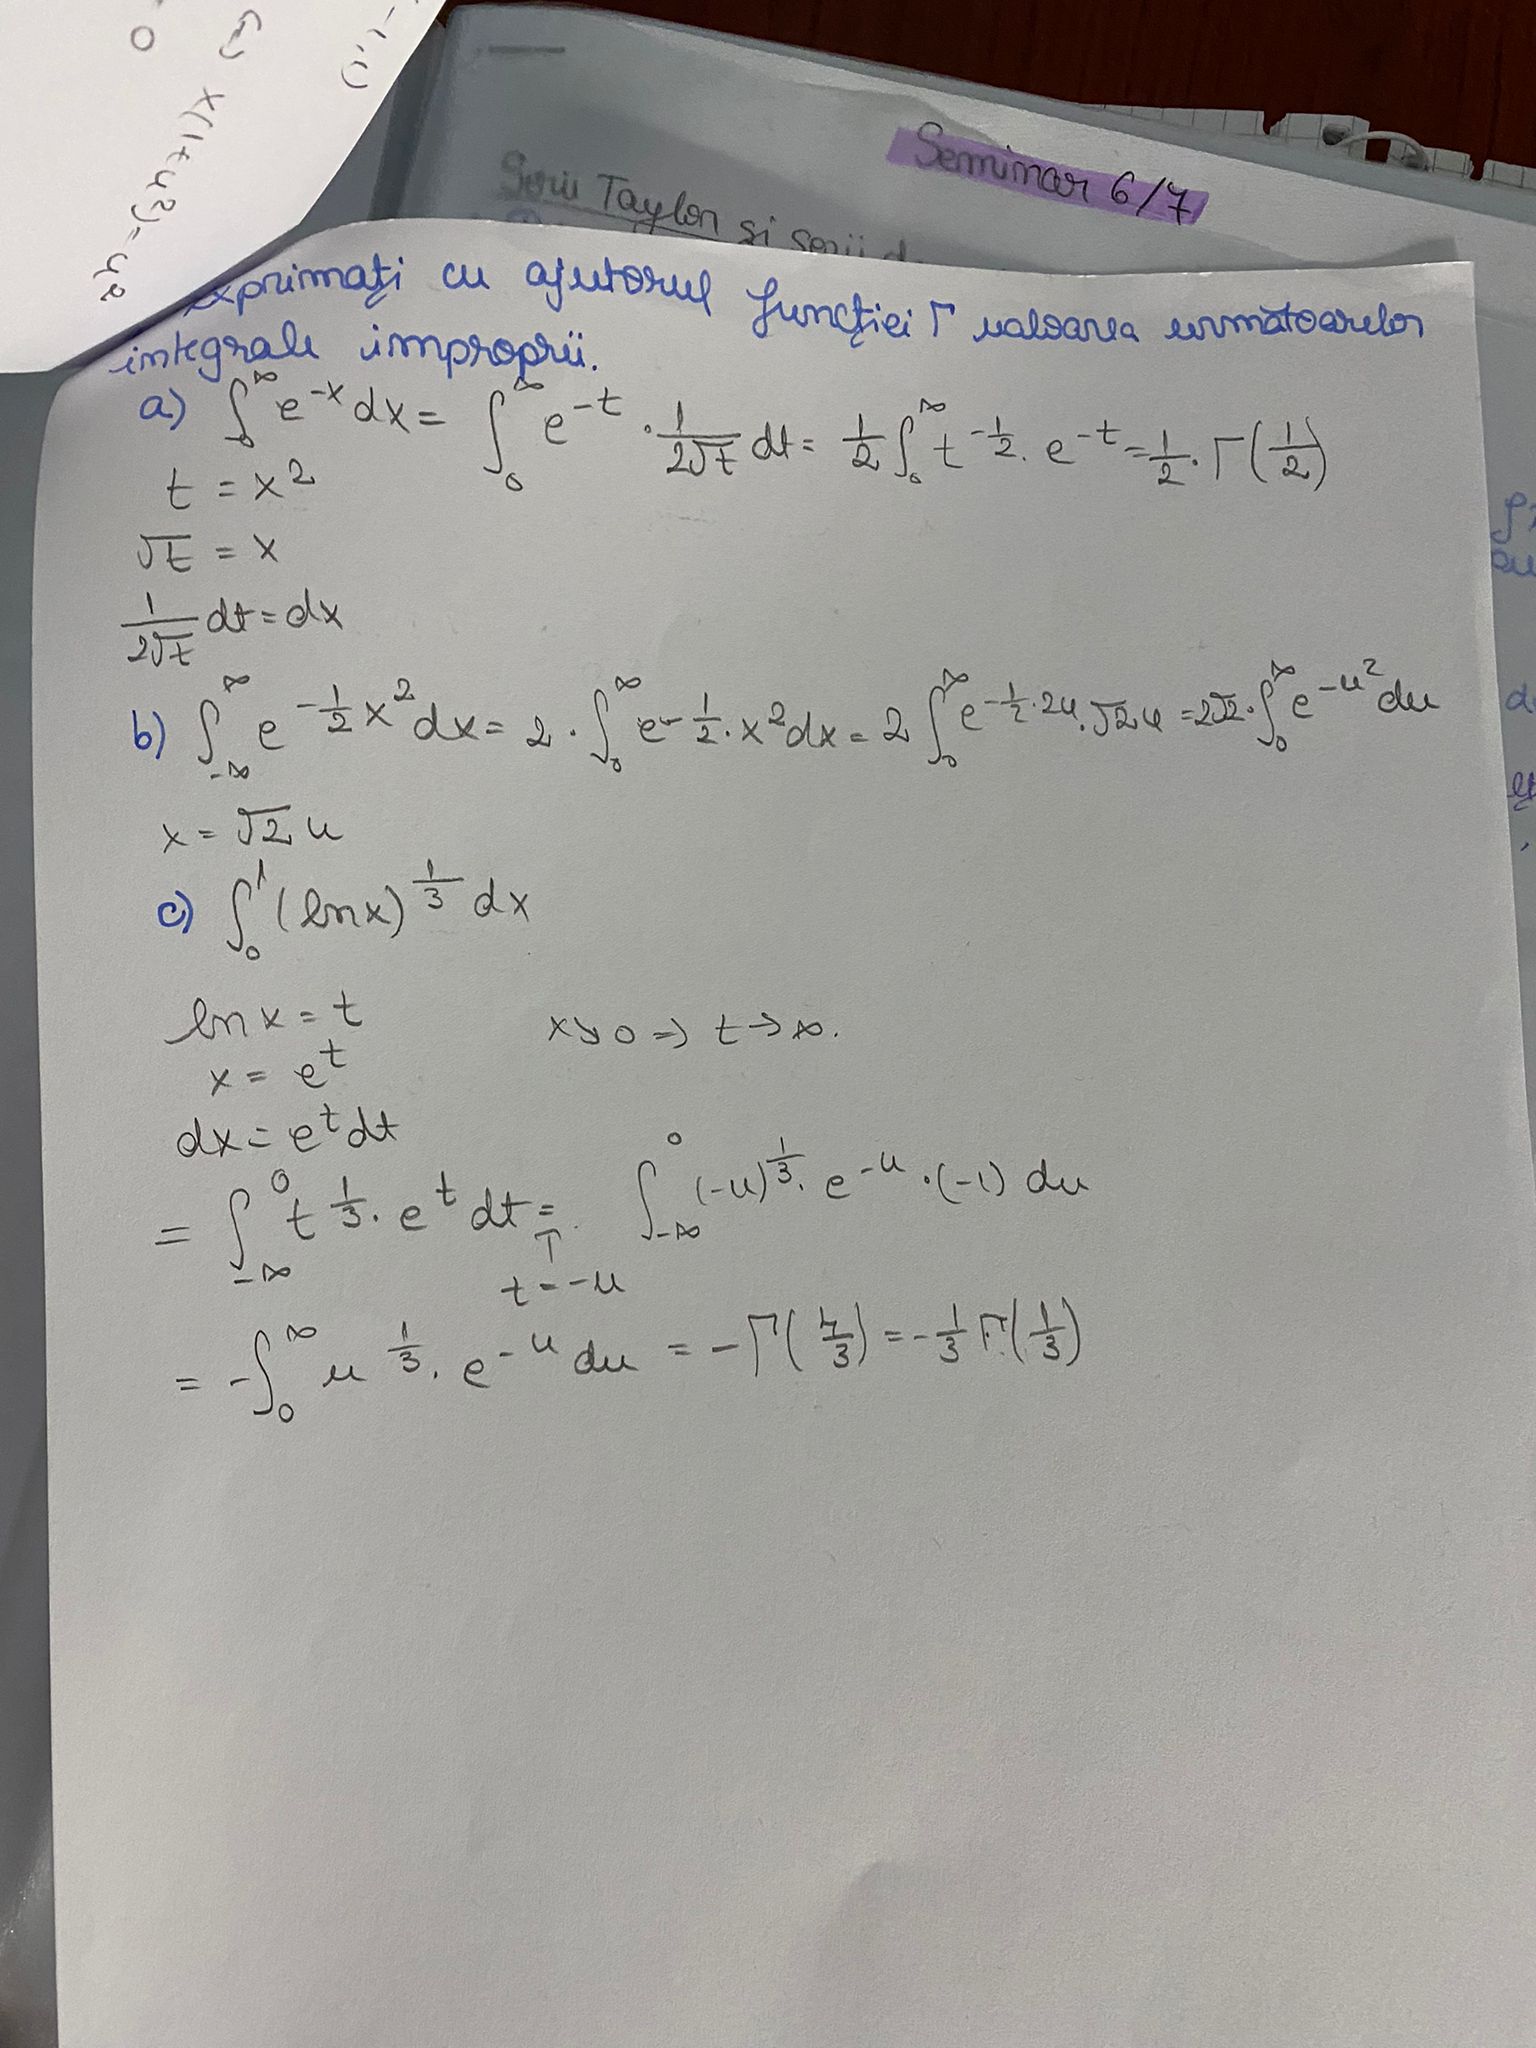 -1,1)
(2) x(1+y²)-y²
0
Seminar 6/7
Serii Taylor și serii d
Exprimați cu ajutorul funcției Γ valoarea următoarelor
integrale improprii.
a) ∫₀^∞ e^{-x} dx = ∫₀^∞ e^{-t} · 1/(2√t) dt = 1/2 ∫₀^∞ t^{-1/2} · e^{-t} = 1/2 · Γ(1/2)
t = x²
√t = x
1/(2√t) dt = dx
b) ∫_{-∞}^∞ e^{-1/2 x²} dx = 2 · ∫₀^∞ e^{-1/2 · x²} dx = 2 ∫₀^∞ e^{-1/2 · 2u} · √2 u = 2√2 · ∫₀^∞ e^{-u²} du
x = √2 u
c) ∫₀^1 (ln x)^{1/3} dx
ln x = t x↘0 => t → ∞.
x = e^t
dx = e^t dt
= ∫_{-∞}^0 t^{1/3} · e^t dt = ∫_{-∞}^0 (-u)^{1/3} · e^{-u} · (-1) du
t = -u
= -∫₀^∞ u^{1/3} · e^{-u} du = -Γ(4/3) = -1/3 Γ(1/3)